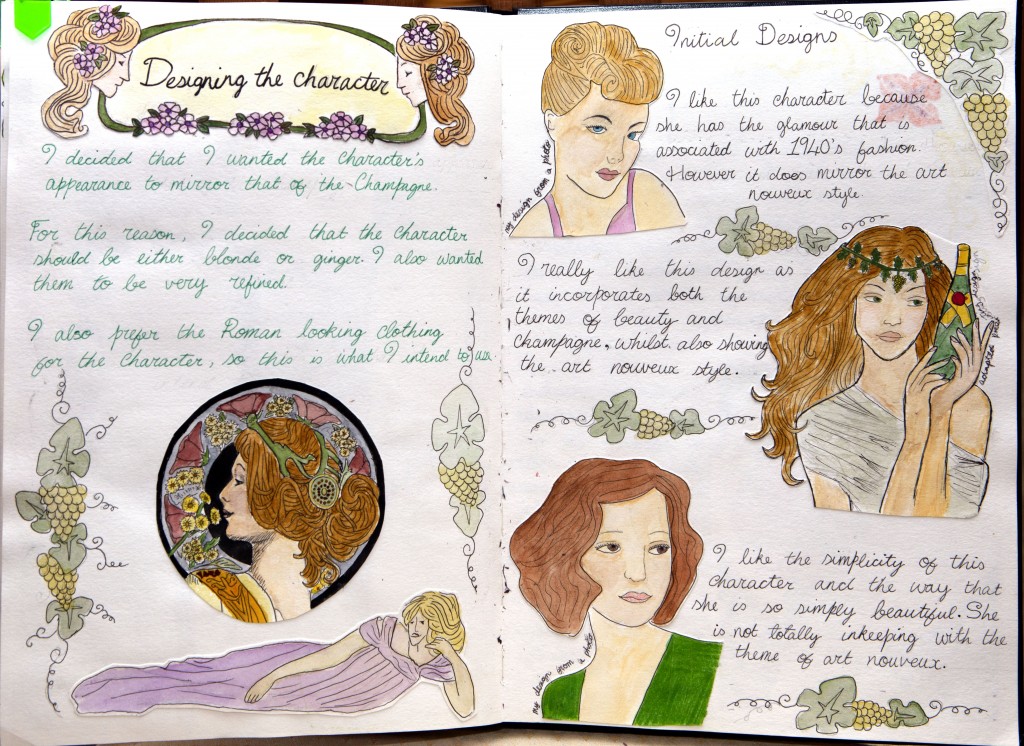 Designing the character
I decided that I wanted the character's
appearance to mirror that of the Champagne.
For this reason, I decided that the character
should be either blonde or ginger. I also wanted
them to be very refined.
I also prefer the Roman looking clothing
for the character, so this is what I intend to use.
Initial Designs
I like this character because
she has the glamour that is
associated with 1940's fashion.
However it does mirror the art
nouveux style.
my design from a photo
I really like this design as
it incorporates both the
themes of beauty and
champagne, whilst also showing
the art nouveux style.
I like the simplicity of this
character and the way that
she is so simply beautiful. She
is not totally inkeeping with the
theme of art nouveux.
my design from a photo